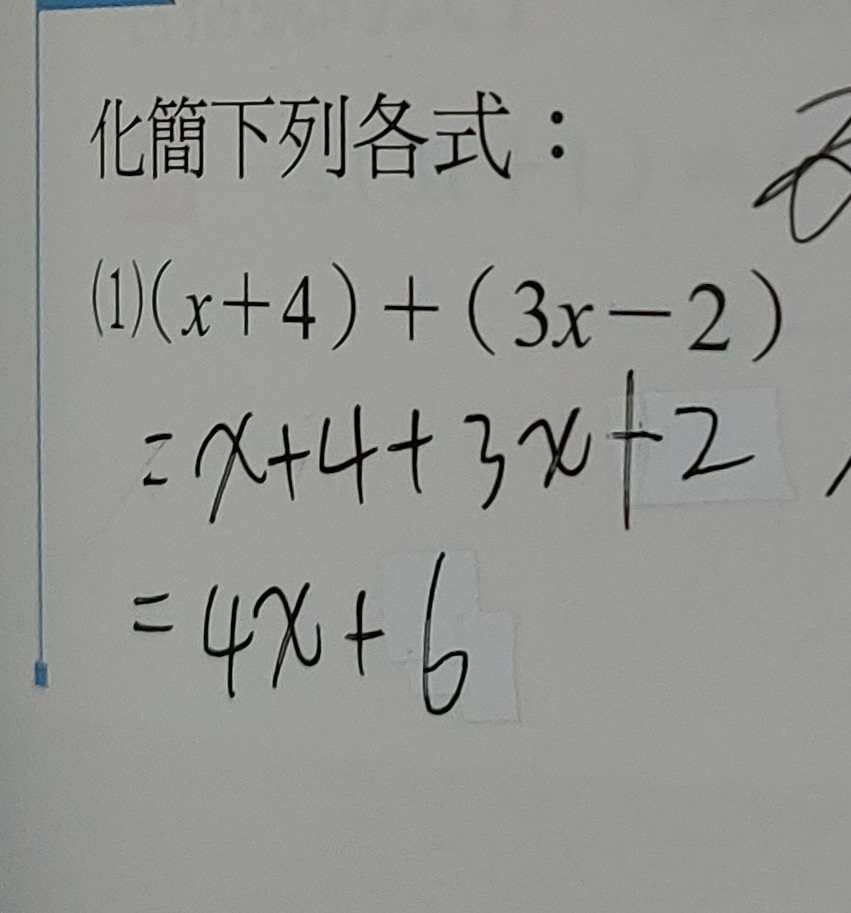 化簡下列各式：
⑴(x+4)+(3x-2)
=x+4+3x+2
=4x+6